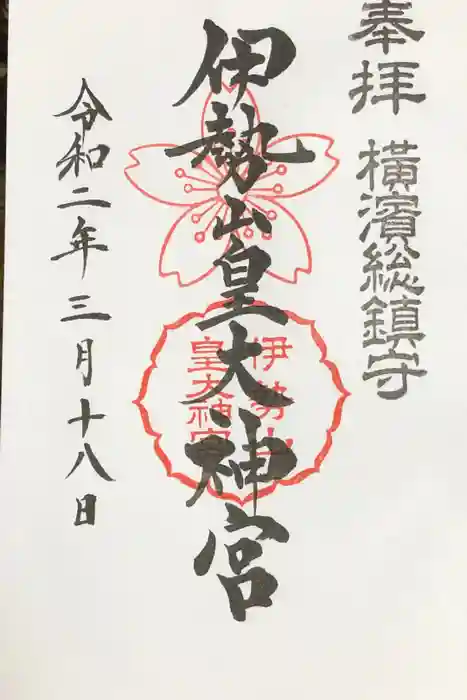 奉拝 横濱総鎮守
伊勢山皇大神宮
伊勢山
皇大神宮
令和二年三月十八日